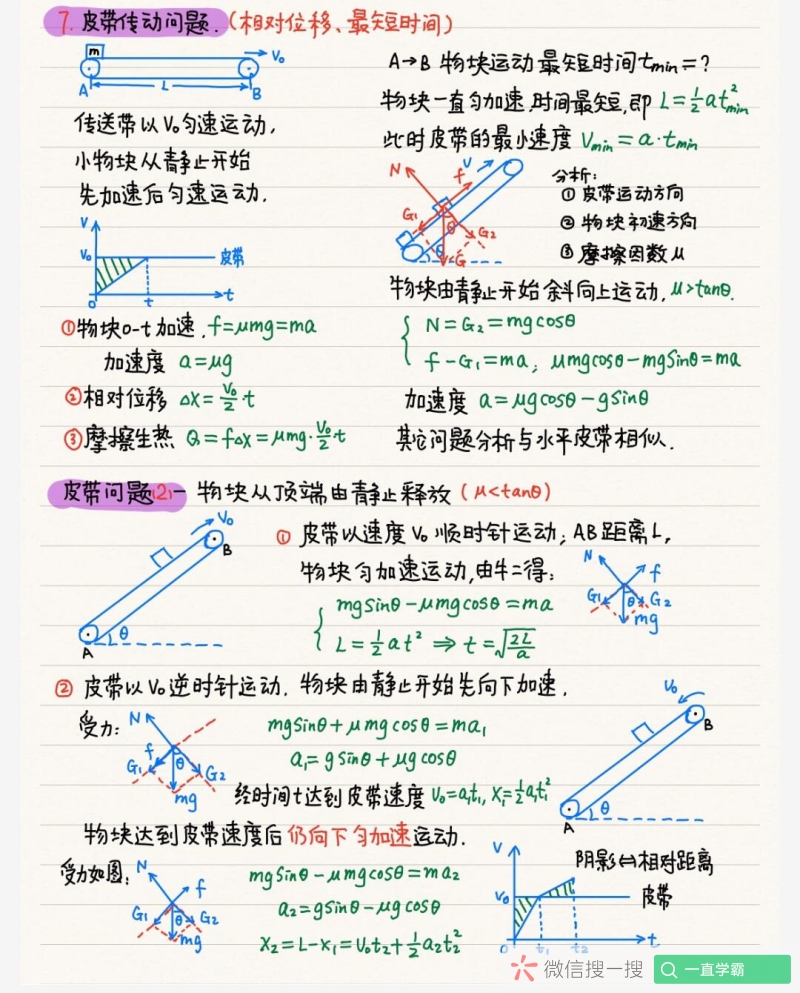 7. 皮带传动问题.(相对位移、最短时间)
m
V₀
A
L
B
传送带以V₀匀速运动,
小物块从静止开始
先加速后匀速运动.
V
V₀
皮带
0
t
t
①物块0-t加速, f=μmg=ma
加速度 a=μg
②相对位移 Δx=V₀/2·t
③摩擦生热 Q=fΔx=μmg·V₀/2 t
A→B 物块运动最短时间tmin=?
物块一直匀加速,时间最短,即 L=½at²min
此时皮带的最小速度 Vmin=a·tmin
N
f
V
G₁
θ
G₂
θ
G
分析:
①皮带运动方向
②物块初速方向
③摩擦因数μ
物块由静止开始斜向上运动, μ>tanθ.
N=G₂=mgcosθ
f-G₁=ma; μmgcosθ-mgSinθ=ma
加速度 a=μgcosθ-gsinθ
其它问题分析与水平皮带相似.
皮带问题(2)一 物块从顶端由静止释放(μ<tanθ)
V₀
B
A
θ
①皮带以速度V₀顺时针运动;AB距离L,
物块匀加速运动,由牛二得:
mgsinθ-μmgcosθ=ma
L=½at² ⇒ t=√(2L/a)
N
f
G₁
θ
G₂
mg
②皮带以V₀逆时针运动. 物块由静止开始先向下加速.
受力:
N
f
G₁
θ
G₂
mg
mgSinθ+μmgcosθ=ma₁
a₁=gsinθ+μgcosθ
经时间t达到皮带速度 V₀=a₁t₁, X₁=½a₁t₁²
V₀
B
A
θ
物块达到皮带速度后仍向下匀加速运动.
受力如图:
N
f
G₁
θ
G₂
mg
mgsinθ-μmgcosθ=ma₂
a₂=gsinθ-μgcosθ
X₂=L-x₁=V₀t₂+½a₂t₂²
V
V₀
0
t₁
t₂
t
阴影⇔相对距离
皮带
微信搜一搜
一直学霸